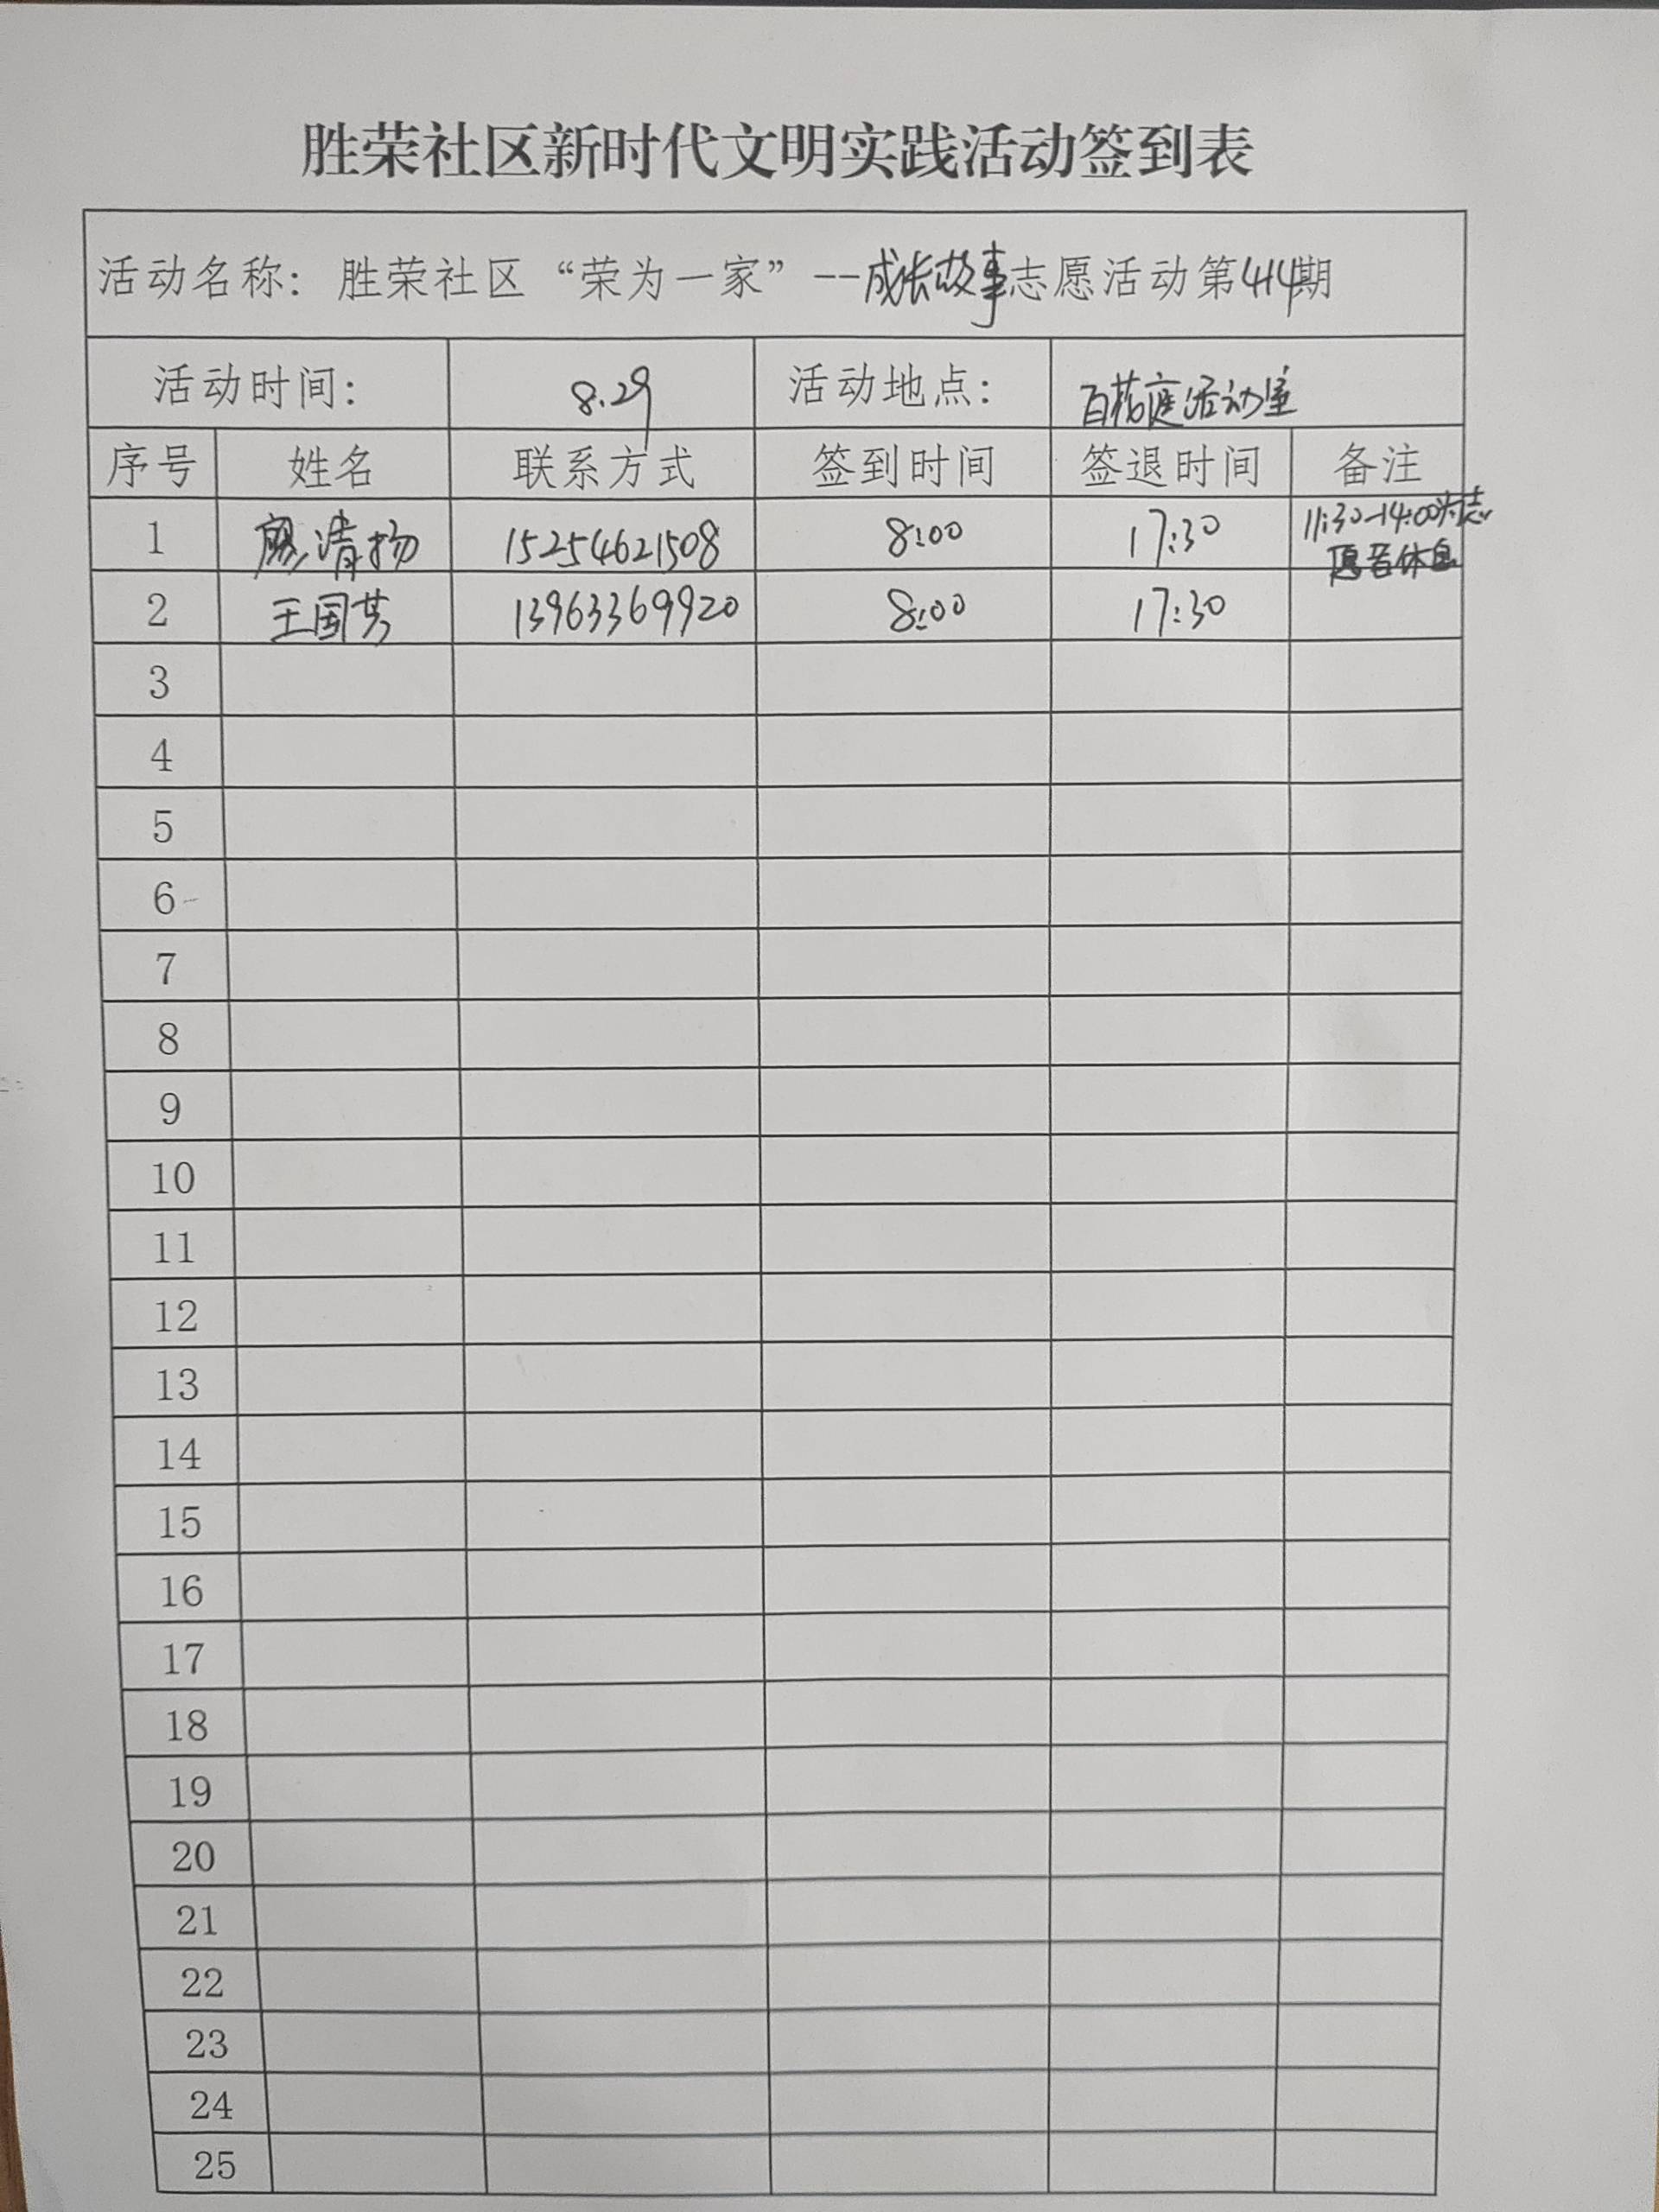 胜荣社区新时代文明实践活动签到表
活动名称：胜荣社区“荣为一家”--成长故事志愿活动第414期
活动时间： 8.29 活动地点： 百花庭活动室
序号 姓名 联系方式 签到时间 签退时间 备注
1 清扬 15254621508 8:00 17:30 11:30-14:00为志
愿者休息
2 王国芳 13963369920 8:00 17:30
3
4
5
6
7
8
9
10
11
12
13
14
15
16
17
18
19
20
21
22
23
24
25